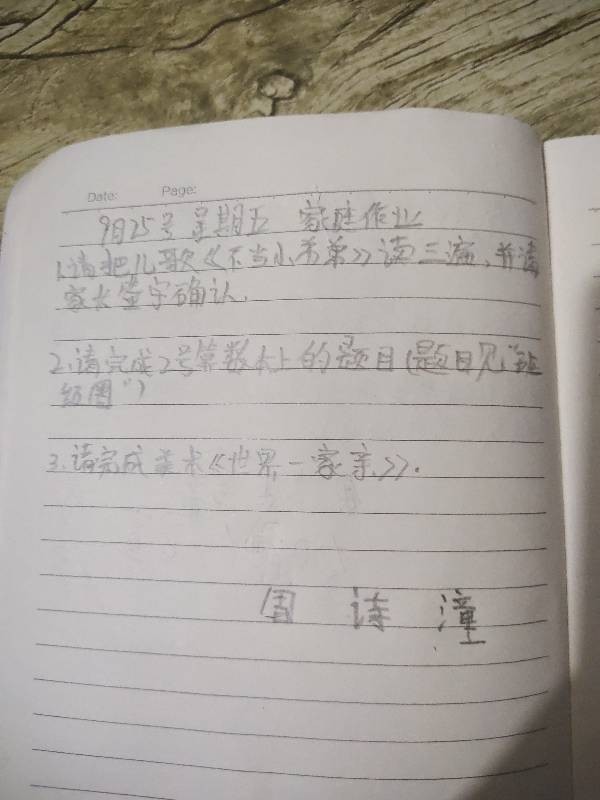 Date: Page:
9月25号 星期五 家庭作业
1.请把儿歌《不当小弟弟》读三遍,并请
家长签字确认.
2.请完成2号算数本上的题目(题目见“班
级圈”)
3.请完成美术《世界一家亲》.
周 诗 潼